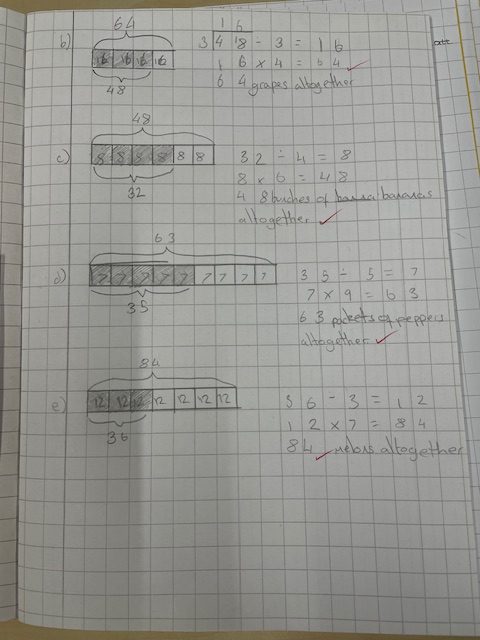 64
b) 16 16 16 16
48
16
3 4 18 ÷ 3 = 16
16 × 4 = 64
64 grapes altogether
48
c) 8 8 8 8 8 8
32
32 ÷ 4 = 8
8 × 6 = 48
48 bunches of bananas
altogether
63
d) 7 7 7 7 7 7 7 7 7
35
35 ÷ 5 = 7
7 × 9 = 63
63 packets of peppers
altogether
84
e) 12 12 12 12 12 12 12
36
36 ÷ 3 = 12
12 × 7 = 84
84 melons altogether